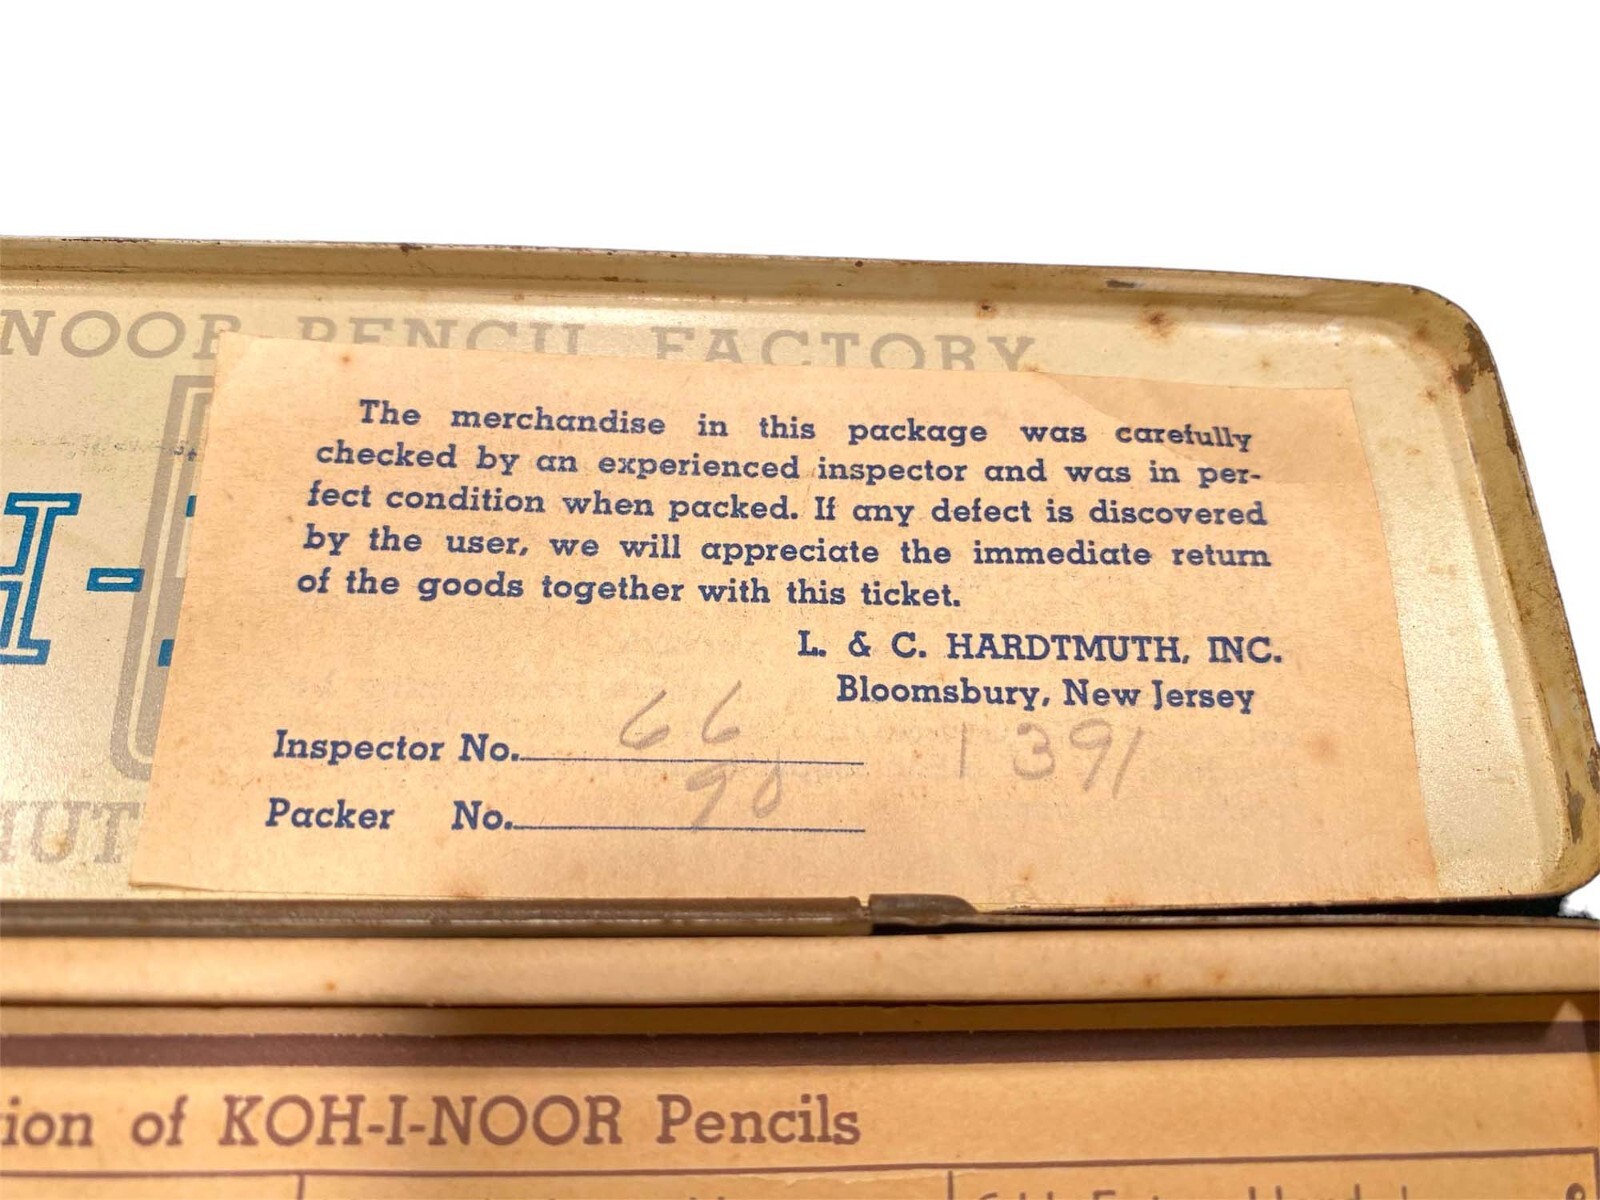 NOOR PENCIL FACTORY
The merchandise in this package was carefully
checked by an experienced inspector and was in per-
fect condition when packed. If any defect is discovered
by the user, we will appreciate the immediate return
of the goods together with this ticket.
L. & C. HARDTMUTH, INC.
Bloomsbury, New Jersey
H-
Inspector No. 66 1391
Packer No. 98
MUT
ion of KOH-I-NOOR Pencils